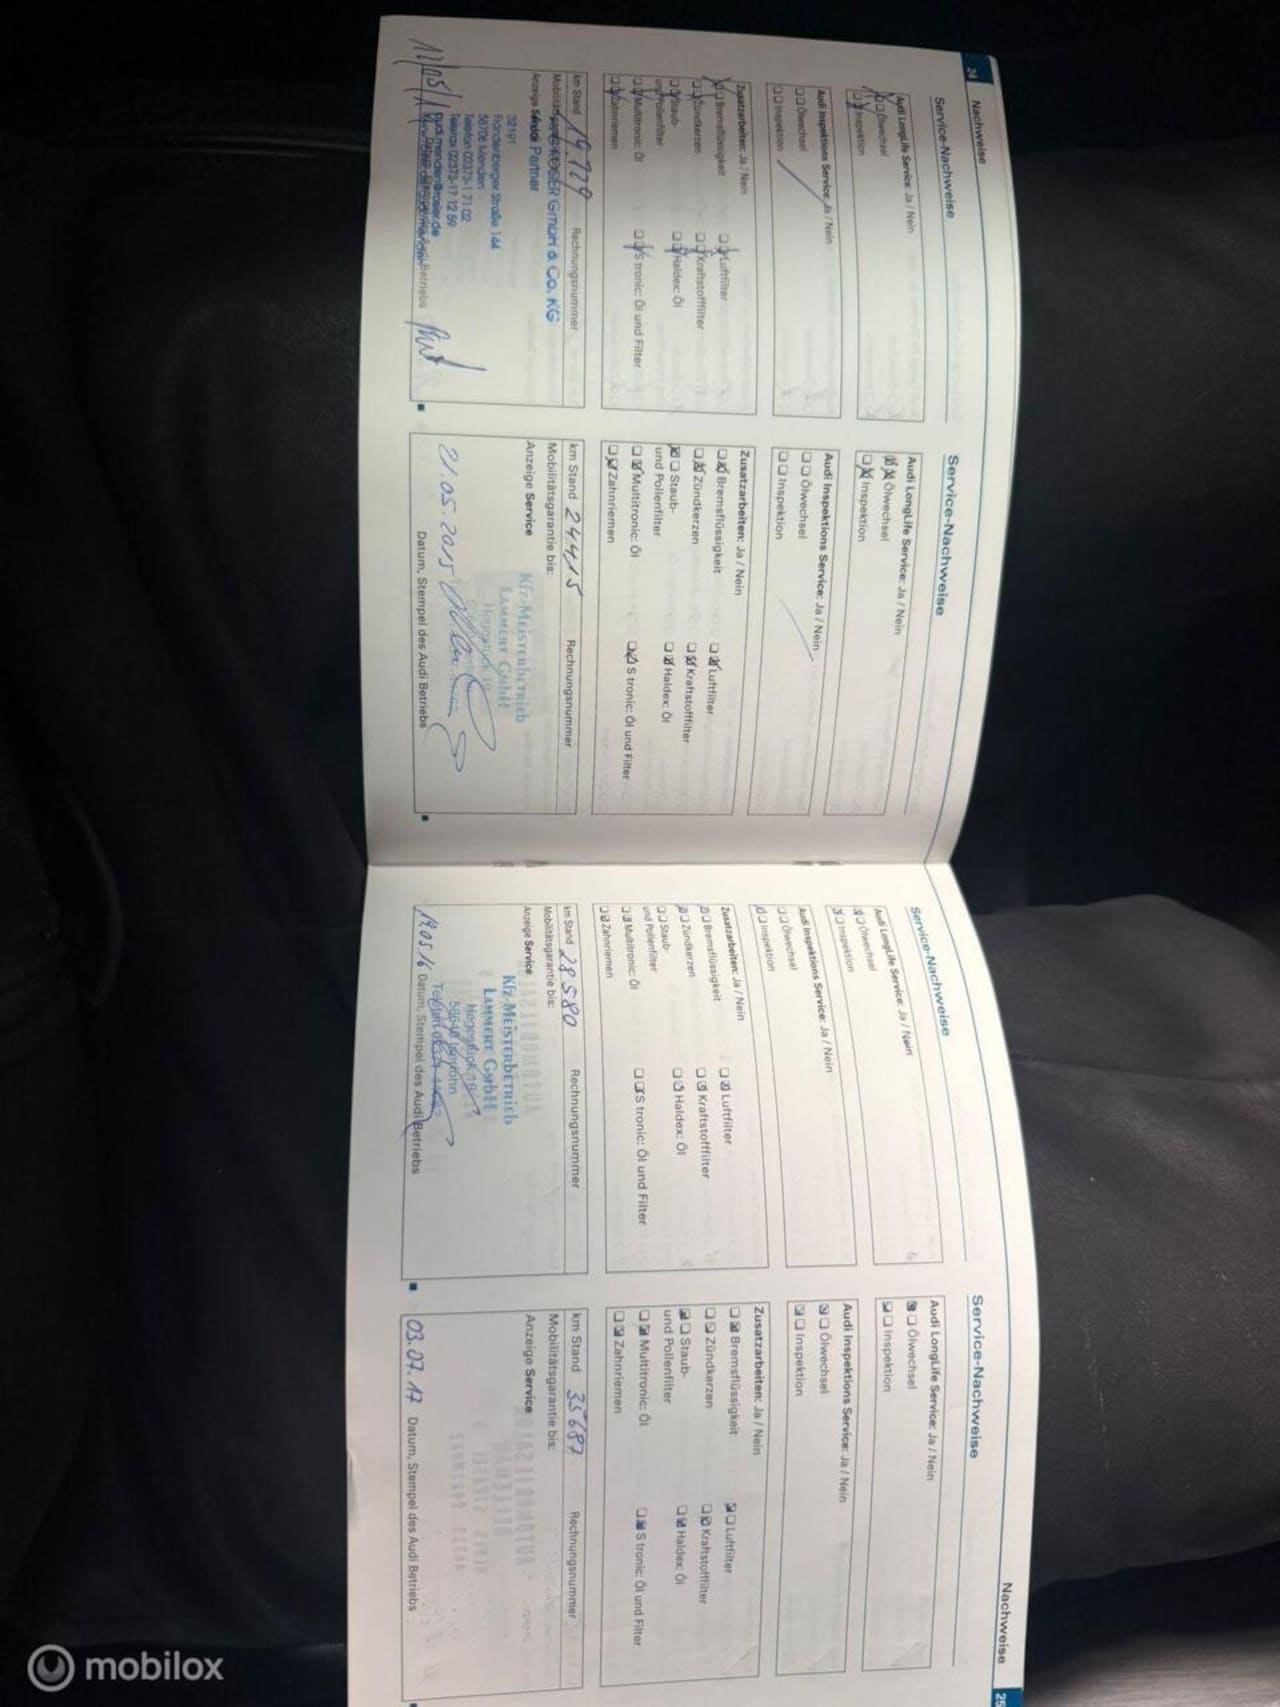 24 Nachweise
Service-Nachweise
Audi LongLife Service: Ja / Nein
Ölwechsel
Inspektion
Audi Inspektions Service: Ja / Nein
Ölwechsel
Inspektion
Zusatzarbeiten: Ja / Nein
Bremsflüssigkeit
Luftfilter
Zündkerzen
Kraftstofffilter
Staub-
und Pollenfilter
Haldex: Öl
Multitronic: Öl
S tronic: Öl und Filter
Zahnriemen
km Stand
Rechnungsnummer
GmbH & Co. KG
Anzeige Partner
32191
Fröndenberger Straße 144
58706 Menden
Telefon 02373-1 71 02
Telefax 02373-17 12 59
Service-Nachweise
Audi LongLife Service: Ja / Nein
Ölwechsel
Inspektion
Audi Inspektions Service: Ja / Nein
Ölwechsel
Inspektion
Zusatzarbeiten: Ja / Nein
Bremsflüssigkeit
Luftfilter
Zündkerzen
Kraftstofffilter
Staub-
und Pollenfilter
Haldex: Öl
Multitronic: Öl
S tronic: Öl und Filter
Zahnriemen
km Stand 24415 Rechnungsnummer
Mobilitätsgarantie bis:
Anzeige Service
Kfz-Meisterbetrieb
Lammert GmbH
21.05.2015
Datum, Stempel des Audi Betriebs
Service-Nachweise
Audi LongLife Service: Ja / Nein
Ölwechsel
Inspektion
Audi Inspektions Service: Ja / Nein
Ölwechsel
Inspektion
Zusatzarbeiten: Ja / Nein
Bremsflüssigkeit
Luftfilter
Zündkerzen
Kraftstofffilter
Staub-
und Pollenfilter
Haldex: Öl
Multitronic: Öl
S tronic: Öl und Filter
Zahnriemen
km Stand 28580 Rechnungsnummer
Mobilitätsgarantie bis:
Anzeige Service
Kfz-Meisterbetrieb
Lammert GmbH
19.05.16 Datum, Stempel des Audi Betriebs
Nachweise 25
Service-Nachweise
Audi LongLife Service: Ja / Nein
Ölwechsel
Inspektion
Audi Inspektions Service: Ja / Nein
Ölwechsel
Inspektion
Zusatzarbeiten: Ja / Nein
Bremsflüssigkeit
Luftfilter
Zündkerzen
Kraftstofffilter
Staub-
und Pollenfilter
Haldex: Öl
Multitronic: Öl
S tronic: Öl und Filter
Zahnriemen
km Stand 35687 Rechnungsnummer
Mobilitätsgarantie bis:
Anzeige Service
03.07.17 Datum, Stempel des Audi Betriebs
mobilox